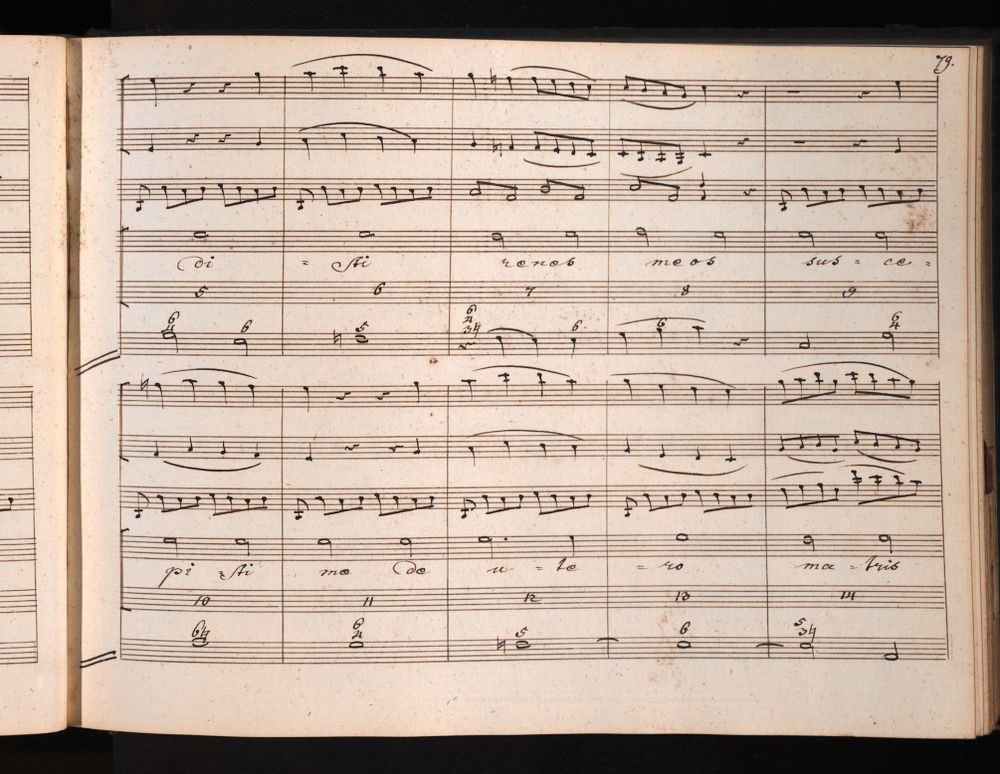 79.
di = sti renes meos sus = ce =
5 6 7 8 9
6 4 6 5 6 4 3 4 6 6 6 4
pi = sti me de u = te = ro ma = tris
10 11 12 13 14
6 4 6 4 5 6 5 3 4